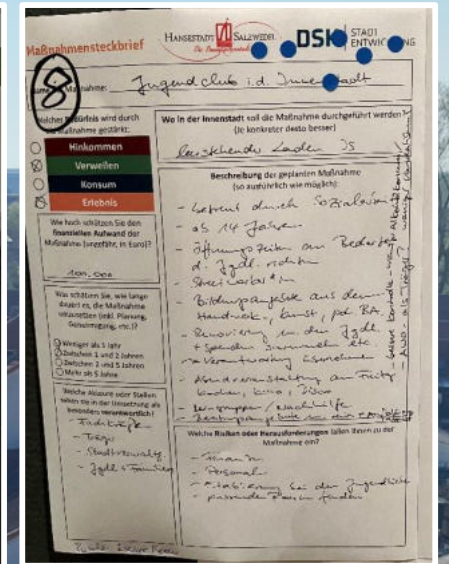 Maßnahmensteckbrief
HANSESTADT SALZWEDEL
Die Baumkuchenstadt
DSK STADT ENTWICKLUNG
8
Name Maßnahme: Jugendclub i.d. Innenstadt
Welches Bedürfnis wird durch die Maßnahme gestärkt:
Hinkommen
Verweilen
Konsum
Erlebnis
Wie hoch schätzen Sie den
finanziellen Aufwand der
Maßnahme (ungefähr, in Euro)?
100.000
Was schätzen Sie, wie lange
dauert es, die Maßnahme
umzusetzen (inkl. Planung,
Genehmigung, etc.)?
Weniger als 1 Jahr
Zwischen 1 und 2 Jahren
Zwischen 2 und 5 Jahren
Mehr als 5 Jahre
Welche Akteure oder Stellen
sehen sie in der Umsetzung als
besonders verantwortlich?
- Fachkräfte
- Träger
- Stadtverwaltg
- Jgdl + Freiwillige
Wo in der Innenstadt soll die Maßnahme durchgeführt werden?
(Je konkreter desto besser)
leerstehender Laden JS
Beschreibung der geplanten Maßnahme
(so ausführlich wie möglich):
- betreut durch Sozialarbeiter
- ab 14 Jahren
- Öffnungszeiten am Bedarf
d. Jgdl. richten
- Streetworker*in
- Bildungsangebote aus dem
Handwerk, Kunst, pol. BA.
- Renovierung m. den Jgdl
+ Spenden sammeln etc.
→ Verantwortung übernehmen
- Abendveranstaltung am Freitag
kochen, Kino, Disco
- Lerngruppen / Nachhilfe
Welche Risiken oder Herausforderungen fallen Ihnen zu der
Maßnahme ein?
- Finanzen
- Personal
- Etablierung bei den Jugendlichen
- passenden Raum finden
- AWO - als Träger?